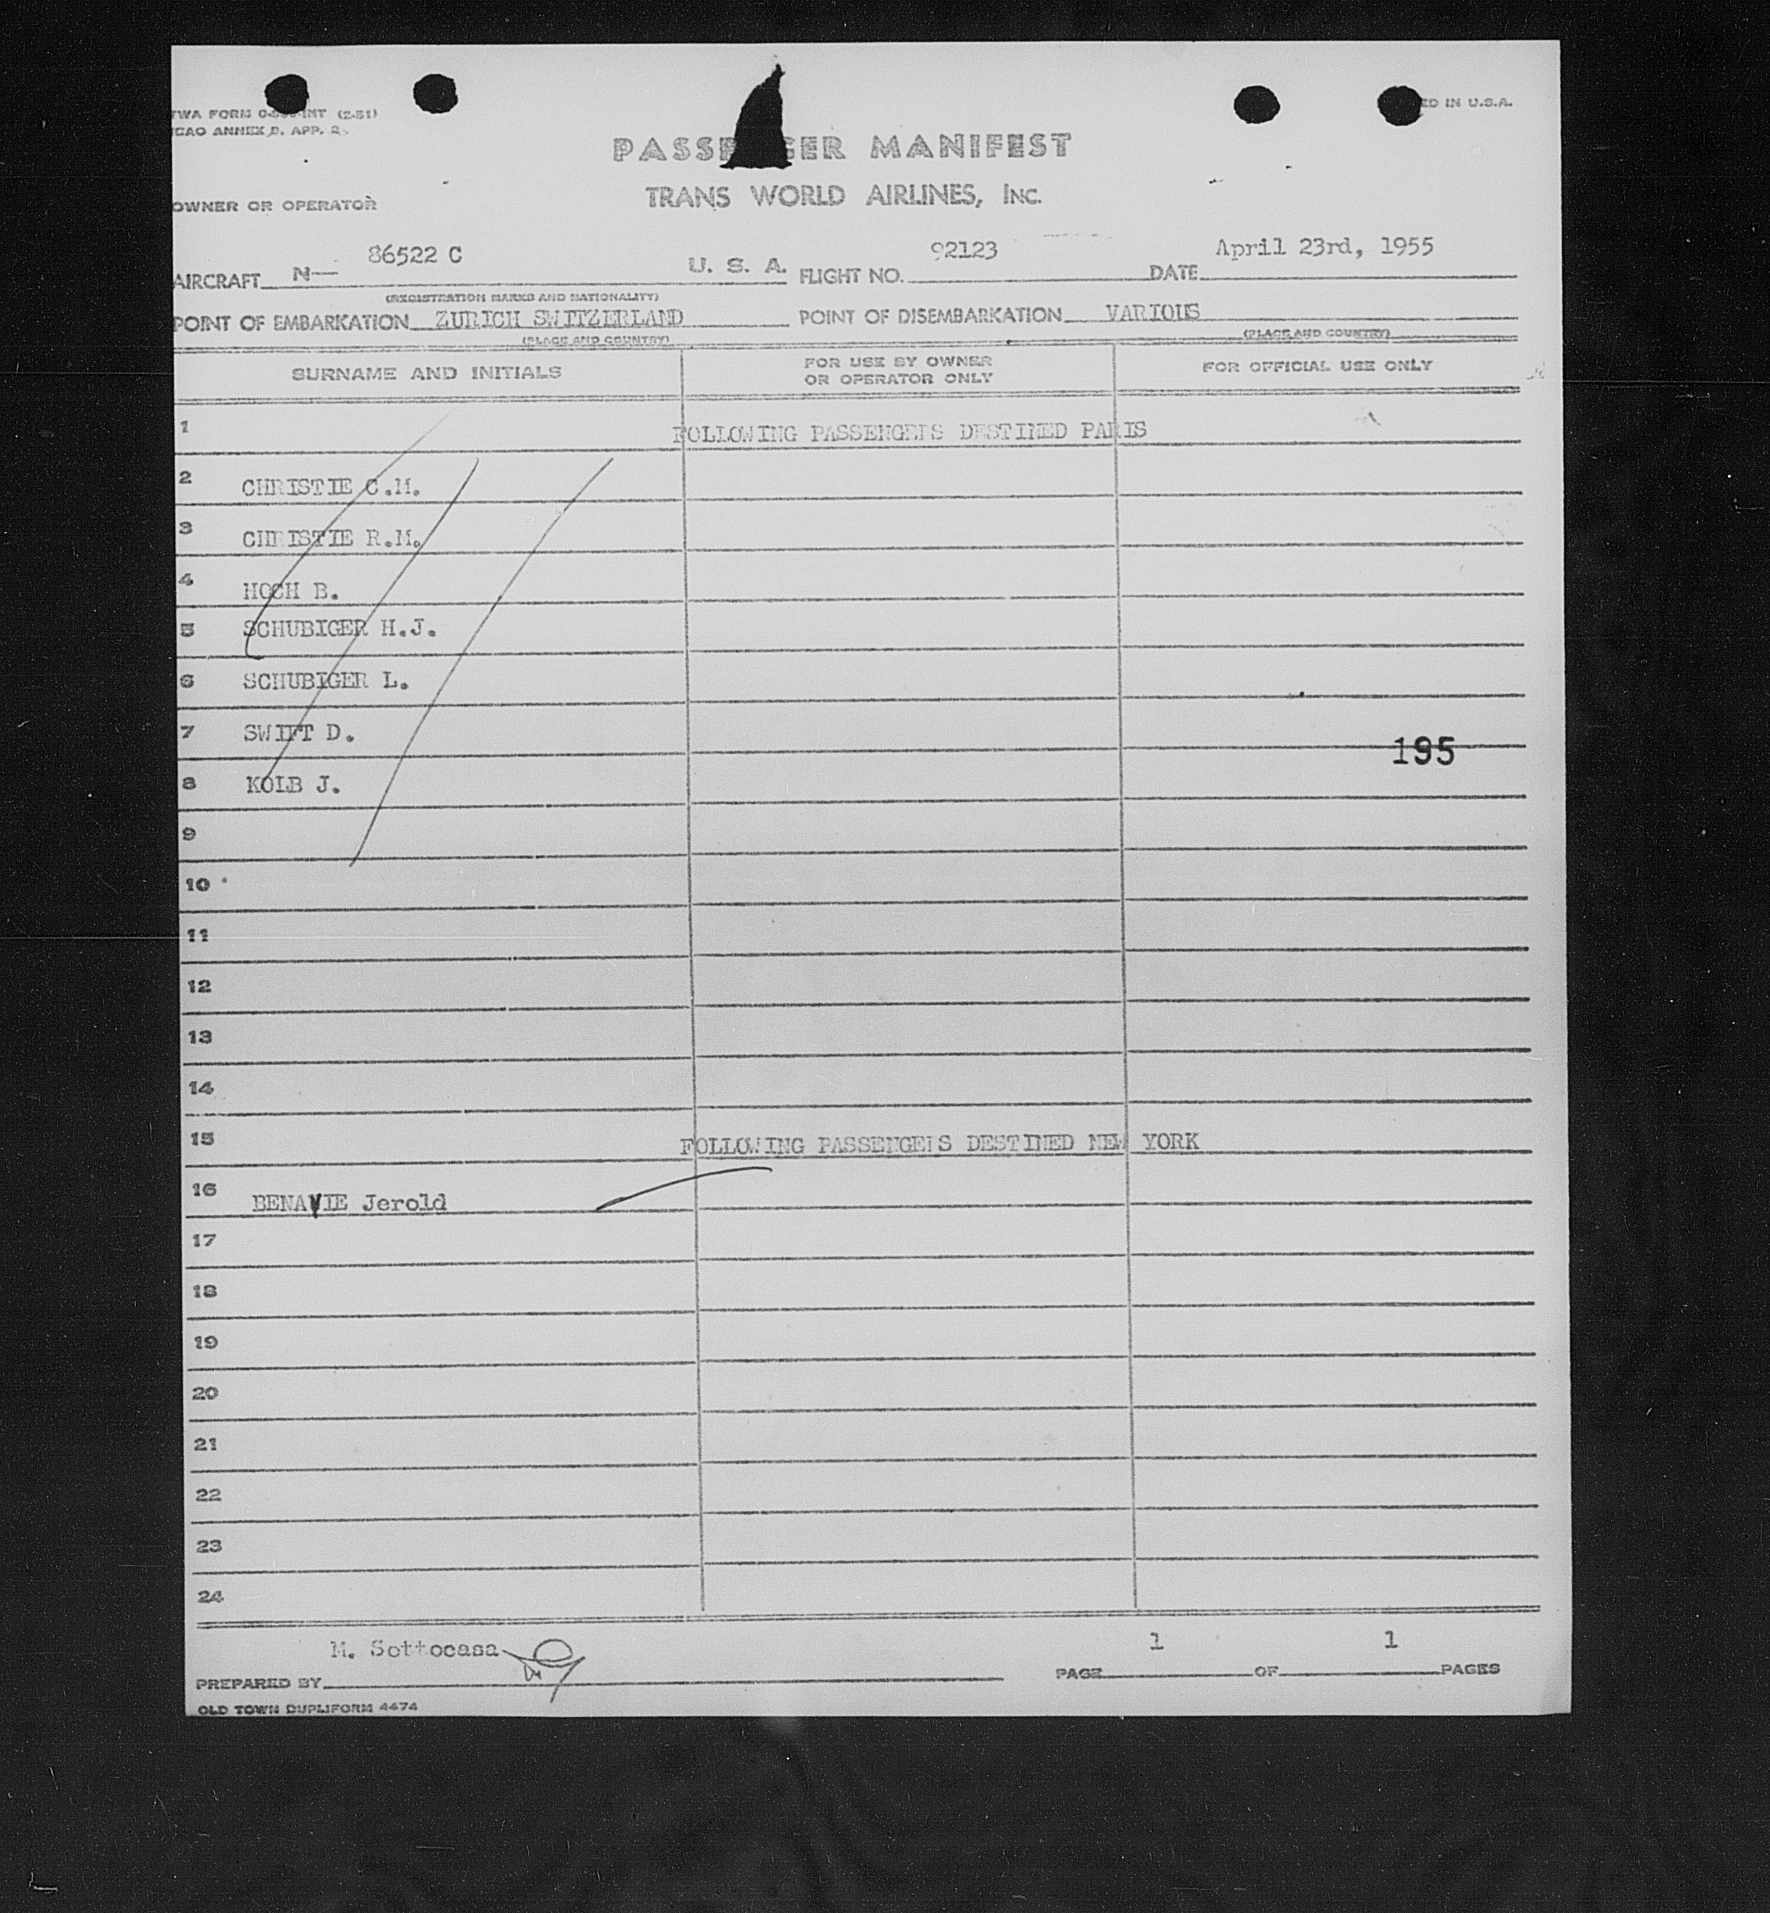 TWA FORM INT (2-51)
PRINTED IN U.S.A.
ICAO ANNEX 9, APP. 2
PASSENGER MANIFEST
OWNER OR OPERATOR
TRANS WORLD AIRLINES, INC.
AIRCRAFT N— 86522 C U. S. A. FLIGHT NO. 92123 DATE April 23rd, 1955
(REGISTRATION MARKS AND NATIONALITY)
POINT OF EMBARKATION ZURICH SWITZERLAND POINT OF DISEMBARKATION VARIOUS
(PLACE AND COUNTRY) (PLACE AND COUNTRY)
SURNAME AND INITIALS FOR USE BY OWNER OR OPERATOR ONLY FOR OFFICIAL USE ONLY
1 FOLLOWING PASSENGERS DESTINED PARIS
2 CHRISTIE C.M.
3 CHRISTIE R.M.
4 HOCH B.
5 SCHUBIGER H.J.
6 SCHUBIGER L.
7 SWIFT D.
195
8 KOLB J.
9
10
11
12
13
14
15 FOLLOWING PASSENGERS DESTINED NEW YORK
16 BENAVIE Jerold
17
18
19
20
21
22
23
24
PREPARED BY M. Sottocasa PAGE 1 OF 1 PAGES
OLD TOWN DUPLIFORM 4474